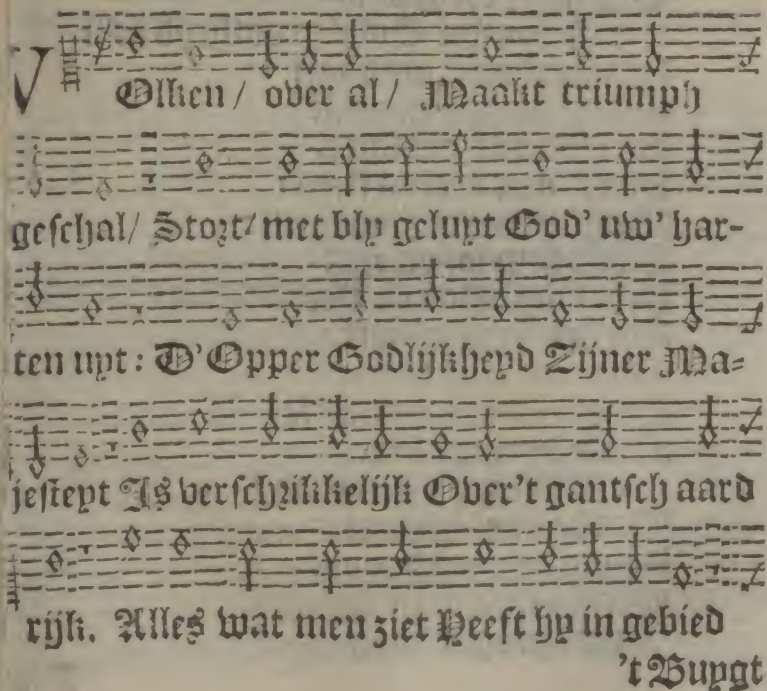 VOlken / over al / Maakt triumph
geschal / Stort / met bly geluyt God' uw' har-
ten uyt : D'Opper Godlijkheyd Zijner Ma-
jesteyt Is verschrikkelijk Over't gantsch aard
rijk. Alles wat men ziet Heeft hy in gebied
't Buygt